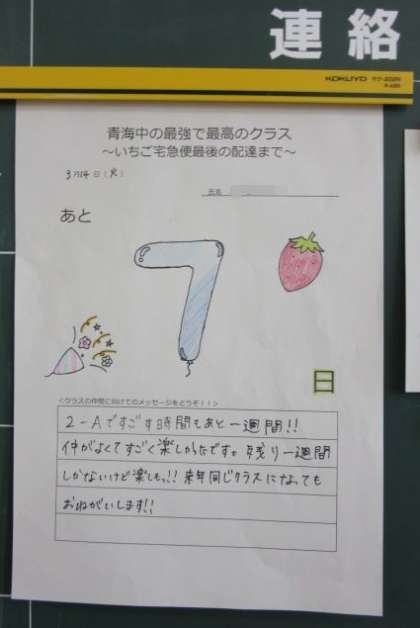 連絡
KOKUYO
青海中の最強で最高のクラス
～いちご宅急便最後の配達まで～
3月14日(火)
氏名
あと
7
日
<クラスの仲間に向けてのメッセージをどうぞ！！>
2-Aですごす時間もあと一週間!!
仲がよくてすごく楽しかったです。残り一週間
しかないけど楽しもっ!! 来年同じクラスになっても
おねがいします!!